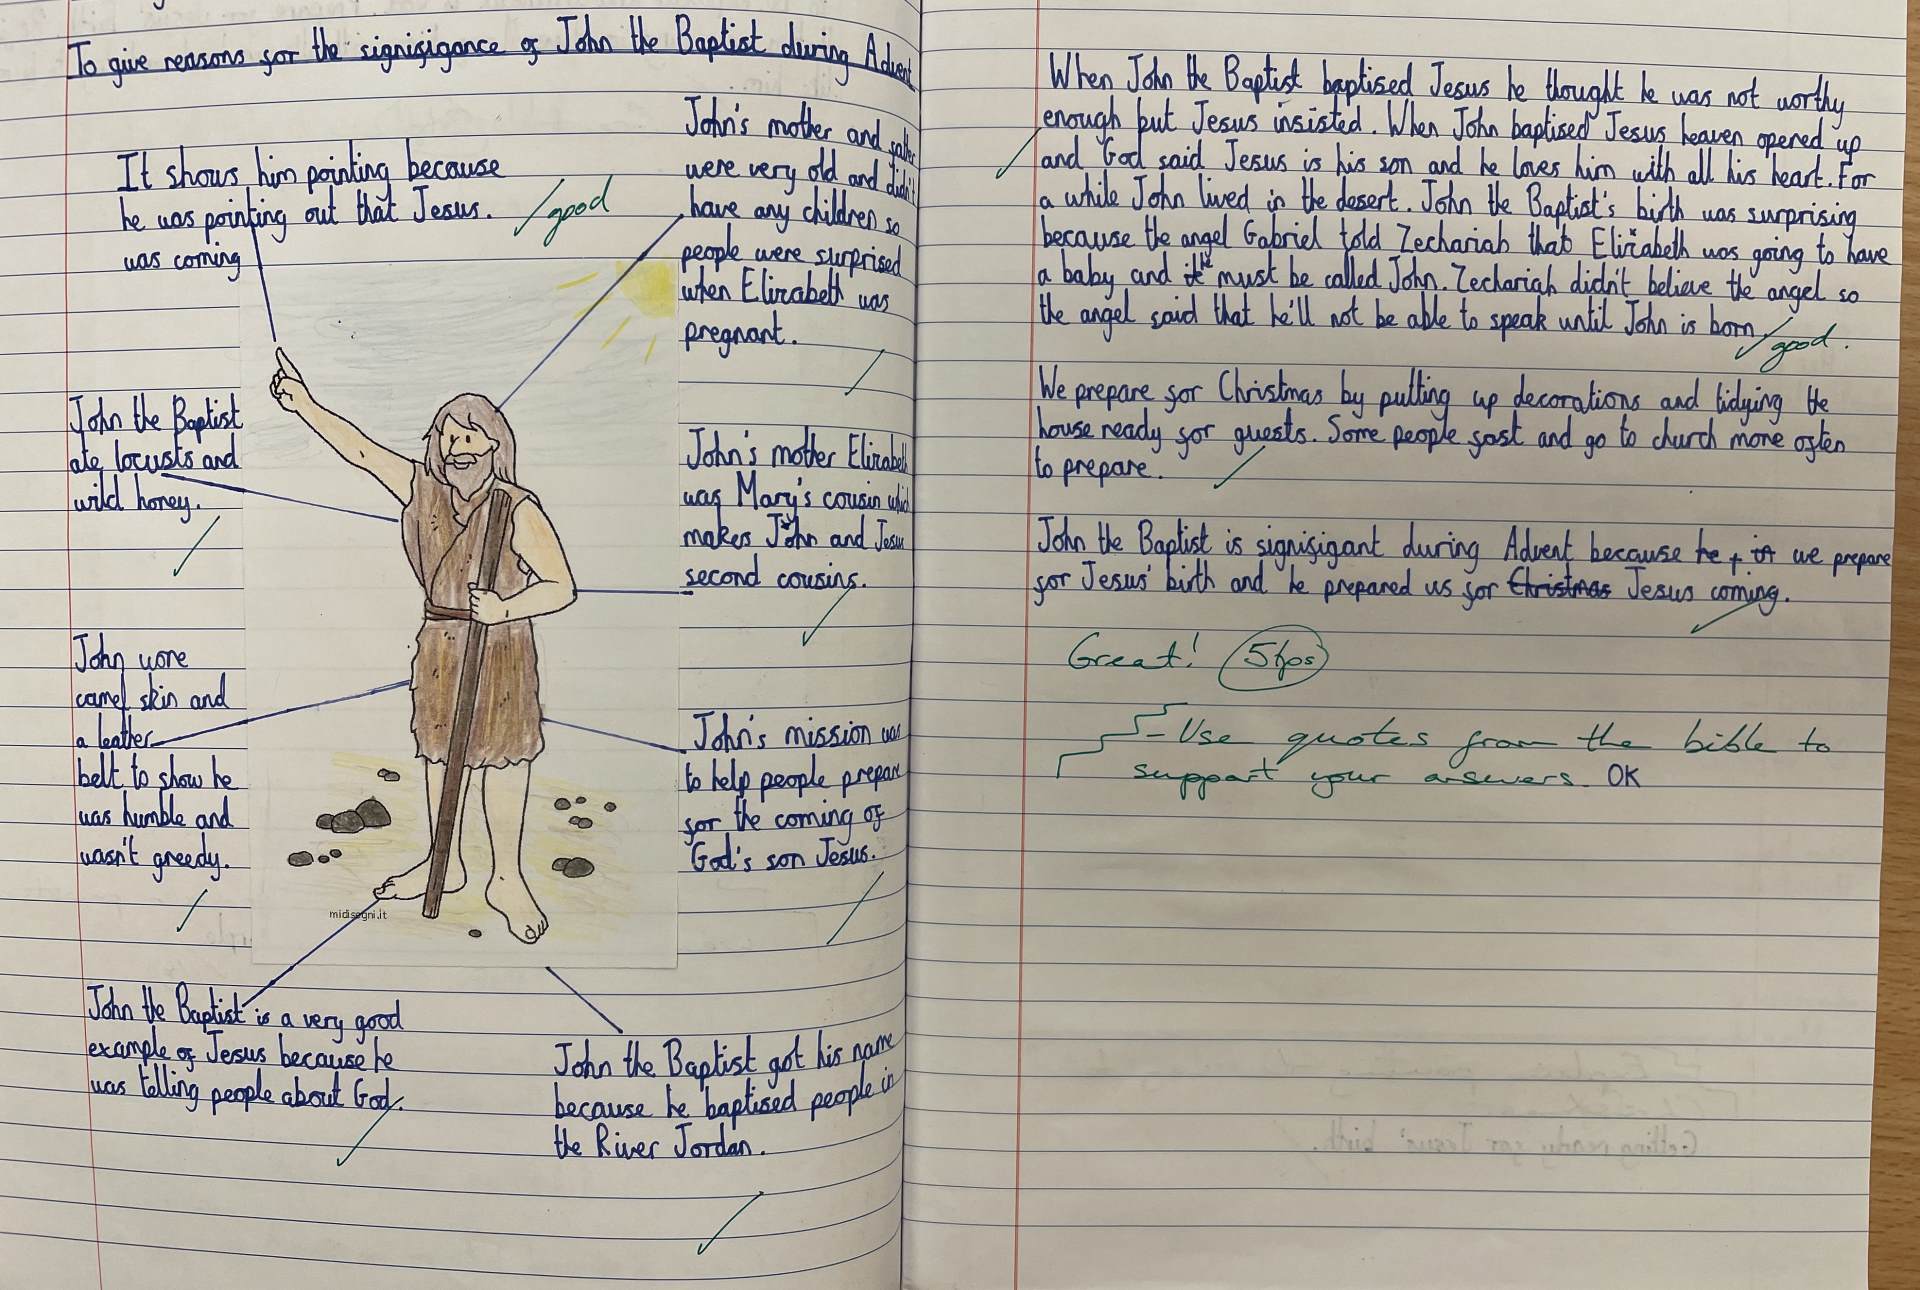 To give reasons for the signifigance of John the Baptist during Advent
It shows him pointing because
he was pointing out that Jesus.
was coming
good
John's mother and father
were very old and didn't
have any children so
people were surprised
when Elizabeth was
pregnant.
John the Baptist
ate locusts and
wild honey.
John's mother Elizabeth
was Mary's cousin which
makes John and Jesus
second cousins.
John wore
camel skin and
a leather
belt to show he
was humble and
wasn't greedy.
John's mission was
to help people prepare
for the coming of
God's son Jesus.
midisegni.it
John the Baptist is a very good
example of Jesus because he
was telling people about God.
John the Baptist got his name
because he baptised people in
the River Jordan.
When John the Baptist baptised Jesus he thought he was not worthy
enough but Jesus insisted. When John baptised Jesus heaven opened up
and God said Jesus is his son and he loves him with all his heart. For
a while John lived in the desert. John the Baptist's birth was surprising
because the angel Gabriel told Zechariah that Elizabeth was going to have
a baby and it he must be called John. Zechariah didn't believe the angel so
the angel said that he'll not be able to speak until John is born
good.
We prepare for Christmas by putting up decorations and tidying the
house ready for guests. Some people fast and go to church more often
to prepare.
John the Baptist is signifigant during Advent because he we prepare
for Jesus' birth and he prepared us for Christmas Jesus coming.
Great!
- Use quotes from the bible to
support your answers. OK
Getting ready for Jesus' birth.